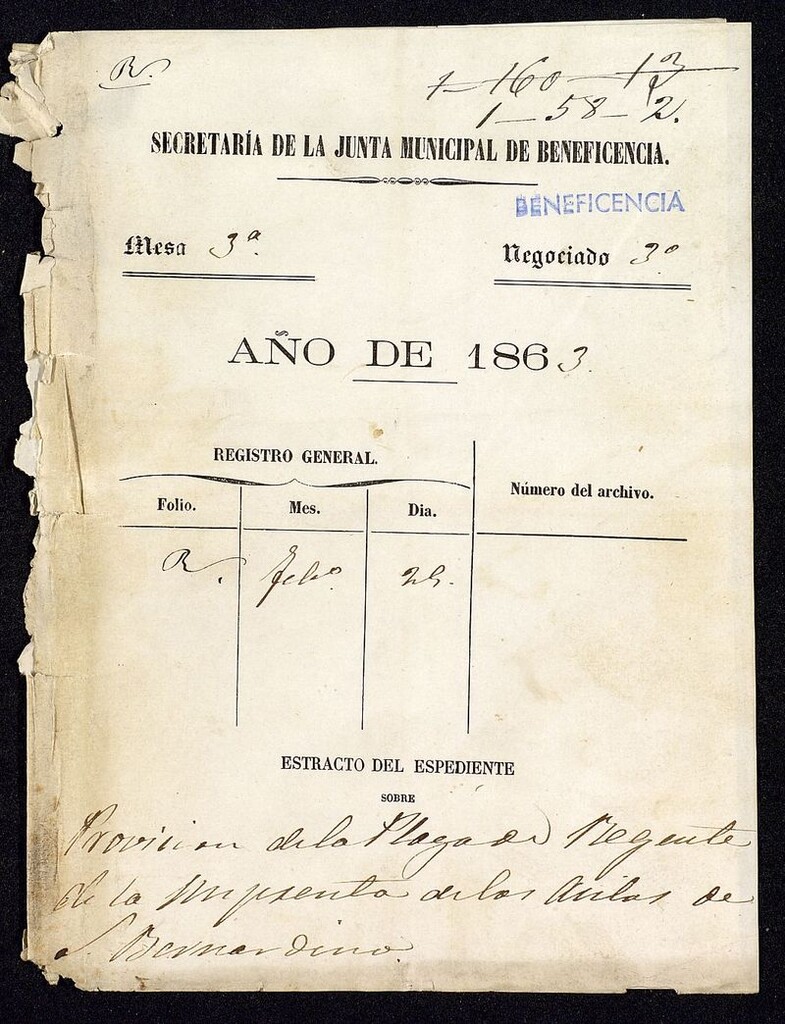 R.
1-160-13
1-58-2.
SECRETARÍA DE LA JUNTA MUNICIPAL DE BENEFICENCIA.
BENEFICENCIA
Mesa 3ª.
Negociado 3º
AÑO DE 1863.
REGISTRO GENERAL.
Número del archivo.
Folio. Mes. Dia.
R. Febº
ESTRACTO DEL ESPEDIENTE
SOBRE
Provision de la Plaza de Regente
de la Imprenta de los Asilos de
S. Bernardino.